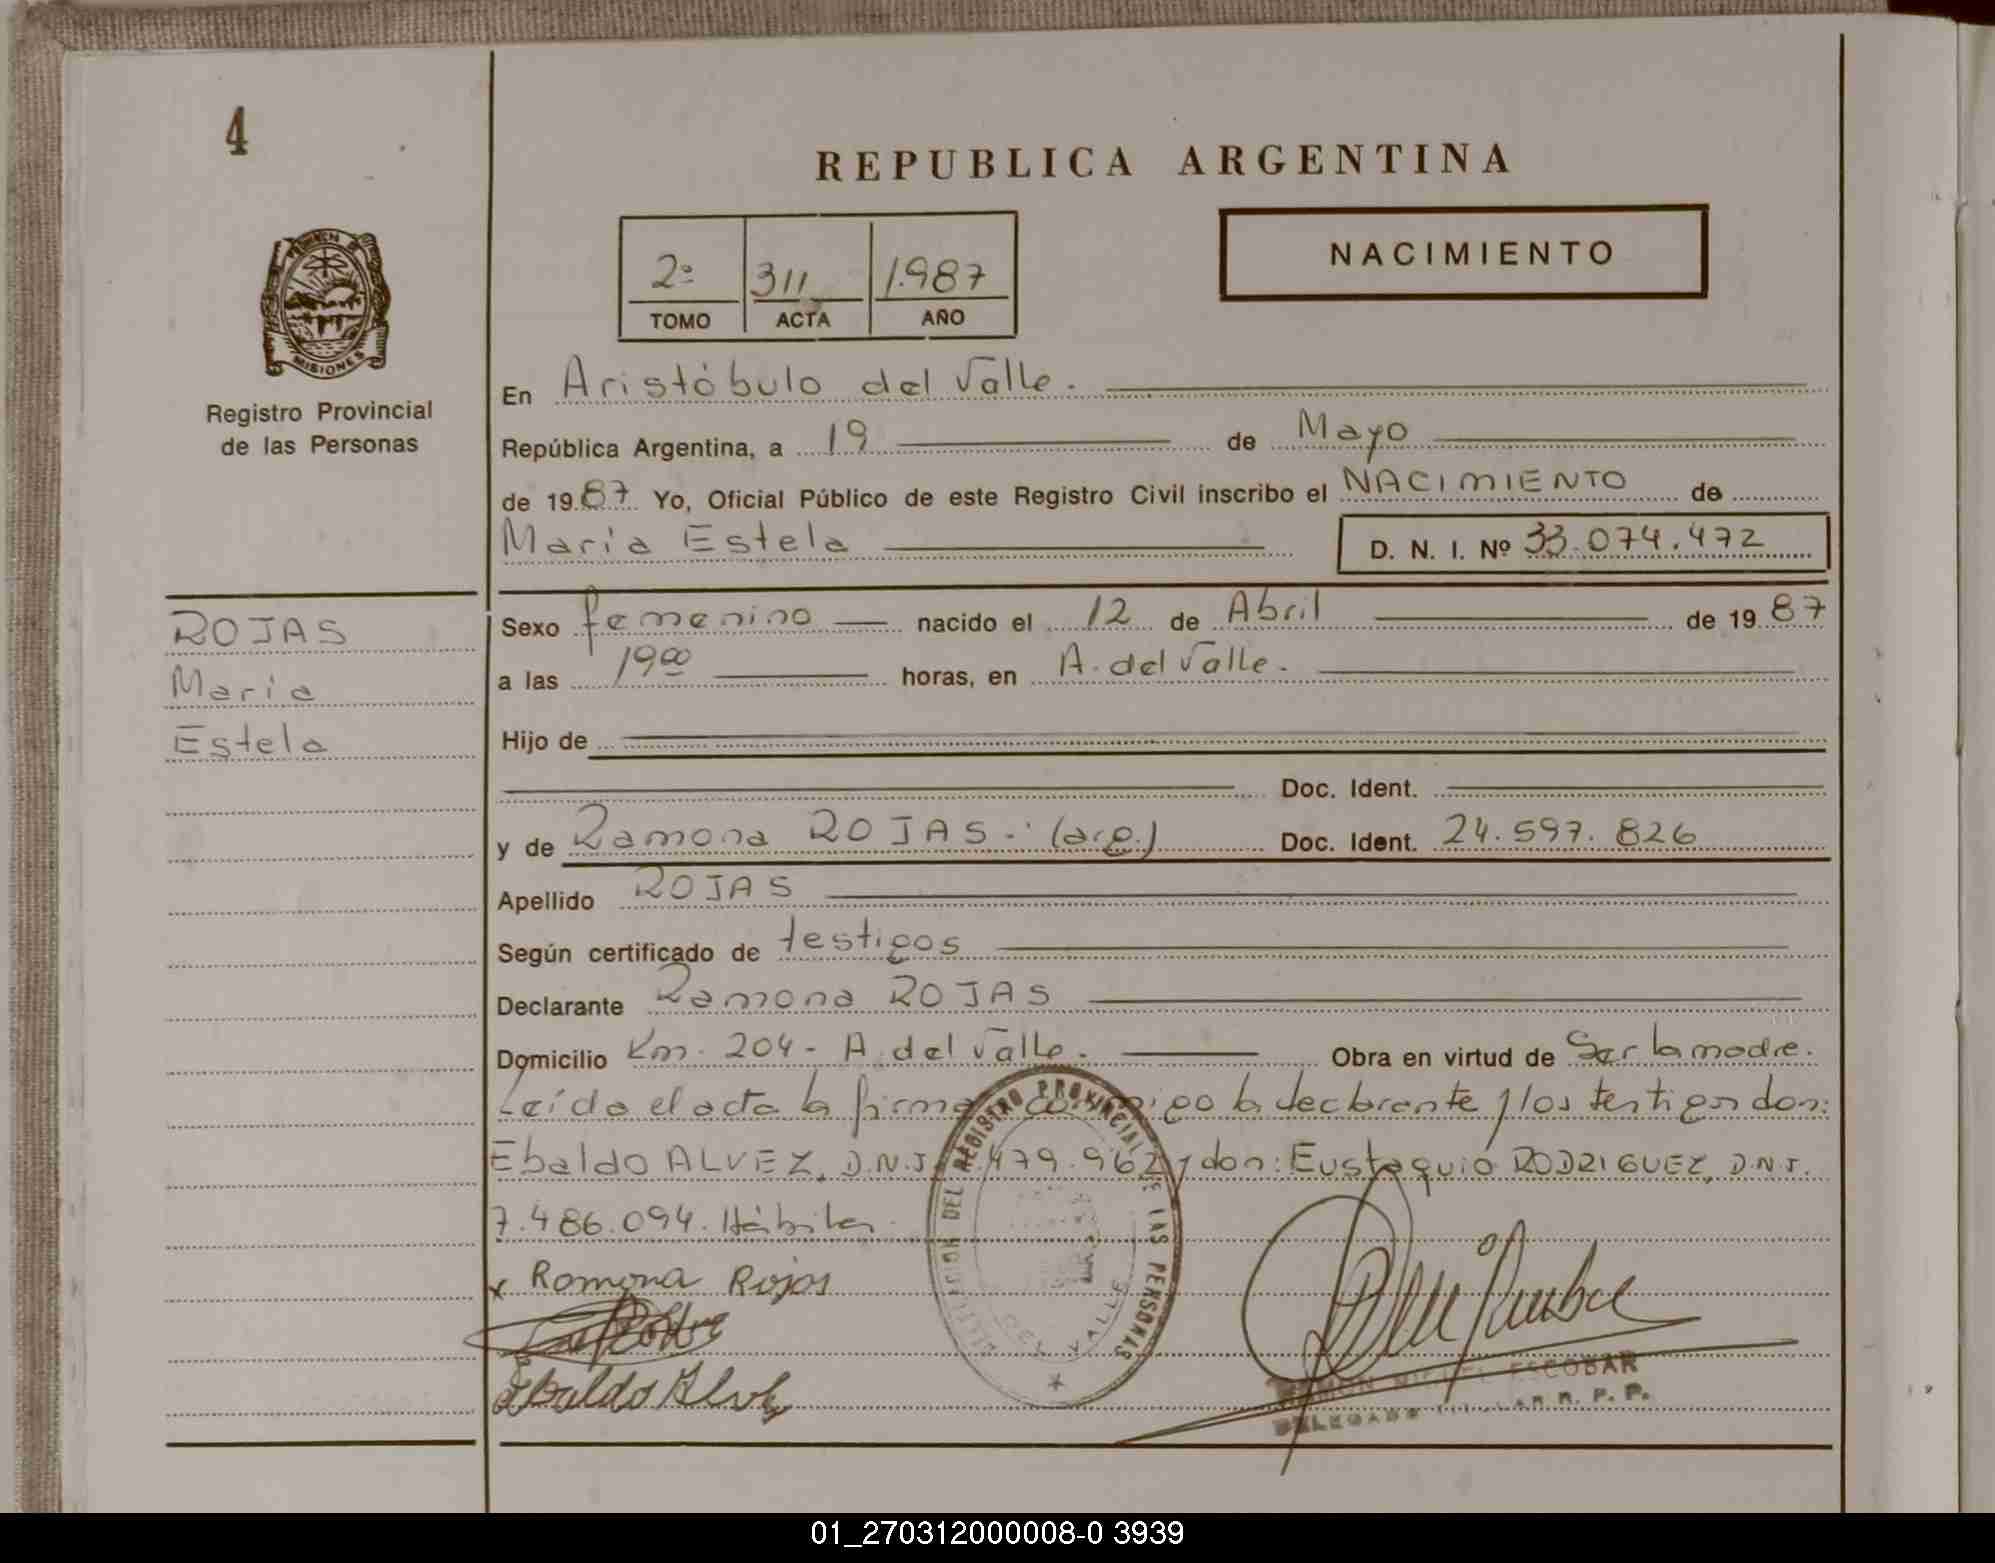 4
REPUBLICA ARGENTINA
2º 311 1.987
TOMO ACTA AÑO
NACIMIENTO
PROVINCIA DE
MISIONES
Registro Provincial
de las Personas
En Aristóbulo del Valle.
República Argentina, a 19 de Mayo
de 1987 Yo, Oficial Público de este Registro Civil inscribo el NACIMIENTO de
María Estela D. N. I. Nº 33.074.472
ROJAS
María
Estela
Sexo femenino nacido el 12 de Abril de 1987
a las 19⁰⁰ horas, en A. del Valle.
Hijo de
Doc. Ident.
y de Ramona ROJAS.- (arg.) Doc. Ident. 24.597.826
Apellido ROJAS
Según certificado de testigos
Declarante Ramona ROJAS
Domicilio Km. 204 - A. del Valle. Obra en virtud de Ser la madre.
Leída el acta la firma conmigo la declarante y los testigos don:
Ebaldo ALVEZ, D.N.I. 479.962 y don: Eustaquio RODRIGUEZ, D.N.I.
7.486.094. Hábiles.
x Ramona Rojas
Ebaldo Alvez
DELEGACION DEL REGISTRO PROVINCIAL DE LAS PERSONAS
DEL VALLE
RAMON MIGUEL ESCOBAR
DELEGADO TITULAR R. P. P.
01_270312000008-0 3939